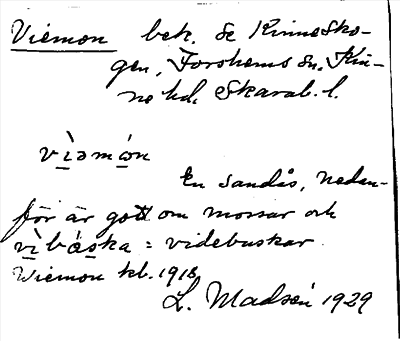 Viemon bek. se Kinnesko-
gen, Forshems sn. Kin-
ne hd. Skarab. l.
vìəmón
En sandås, nedan-
för är gott om mossar och
vìbáska = videbuskar.
Wiemon kb. 1918
L. Madsén 1929